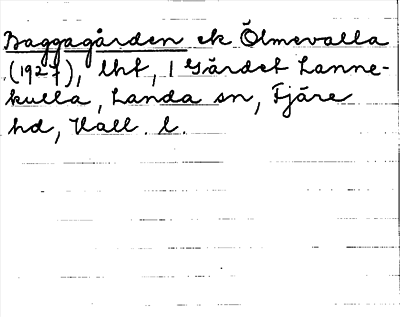 Baggagården ek Ölmevalla
(1927), lht, 1 Gärdet Lanne-
kulla, Landa sn, Fjäre
hd, Hall. l.